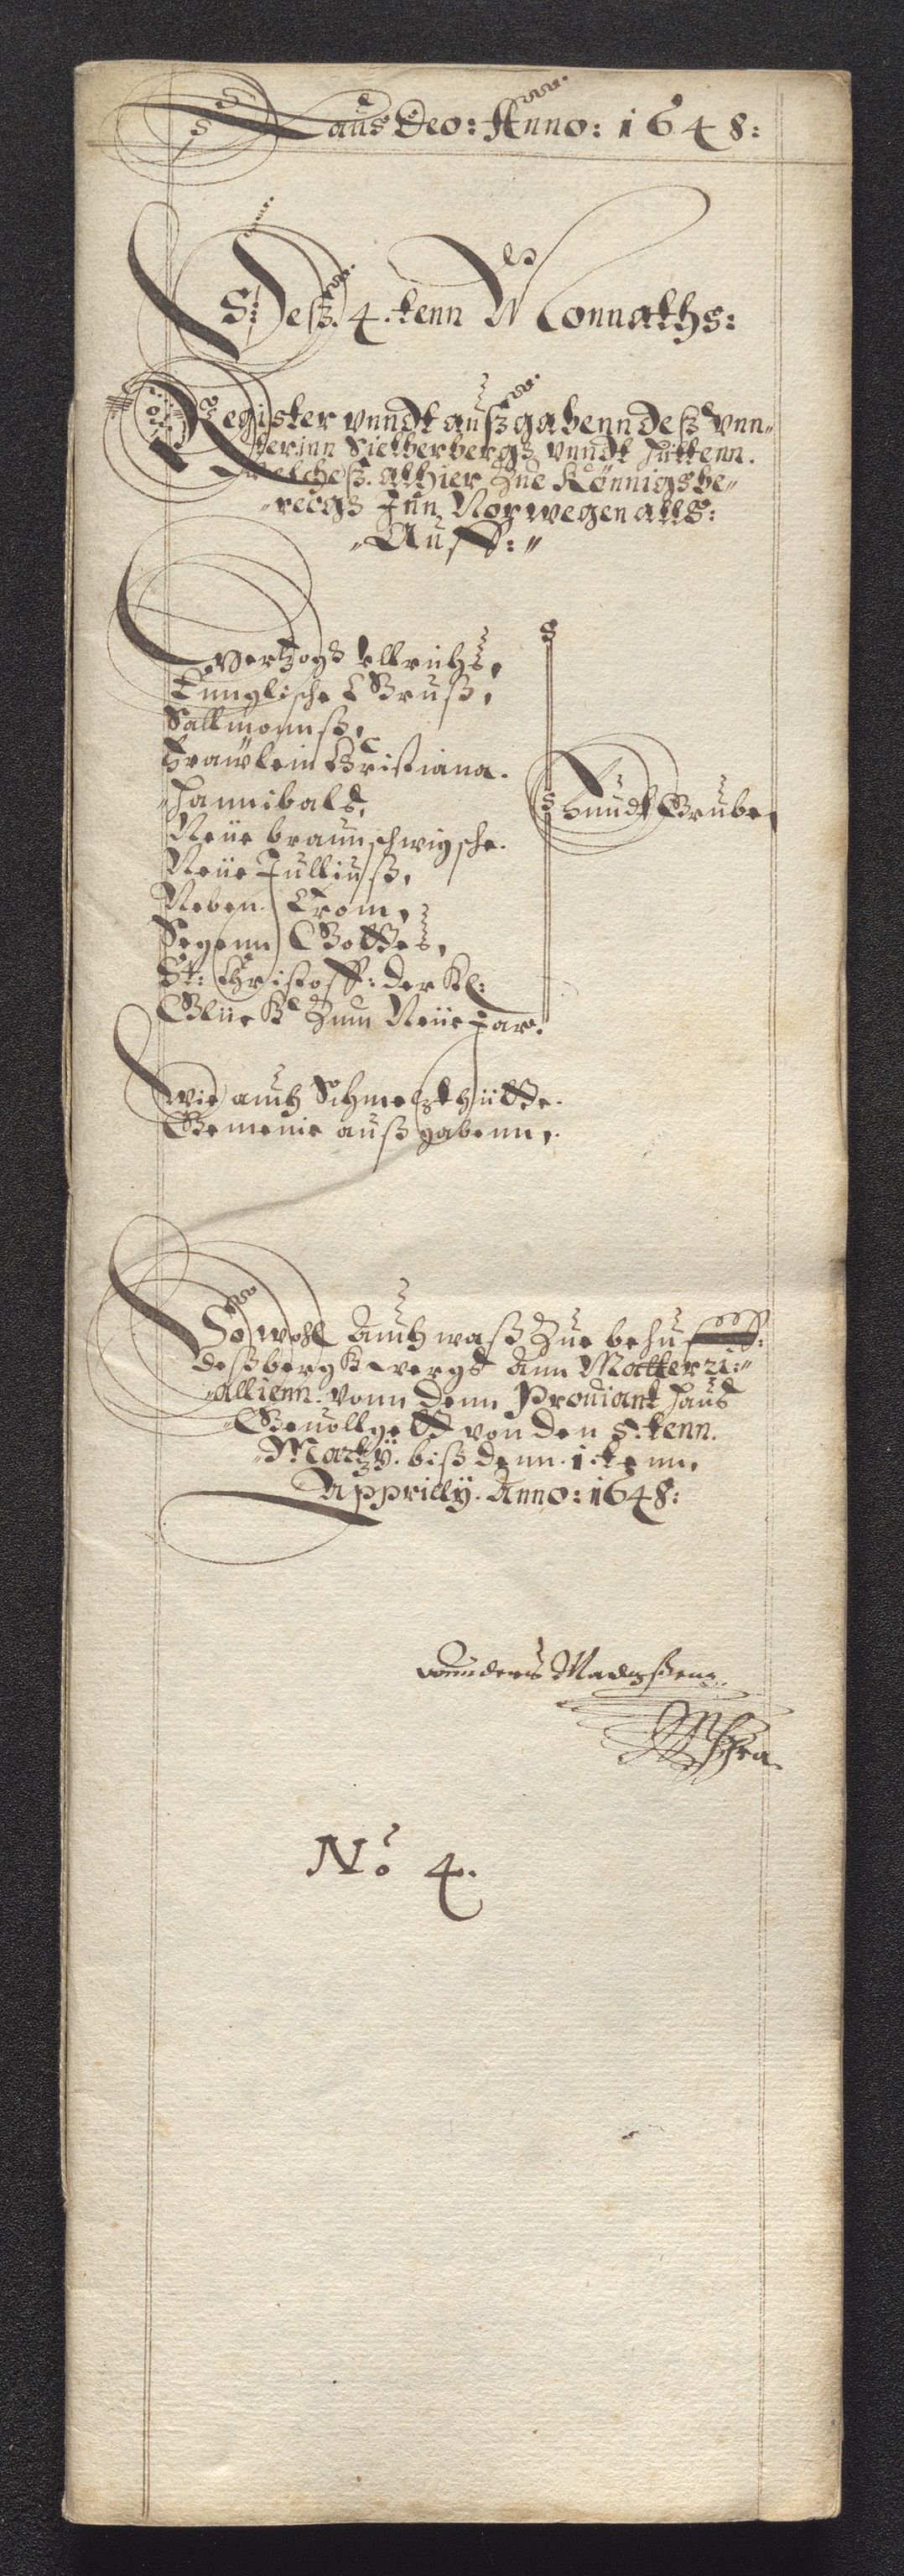 Laus Deo: Anno: 1648:
Deß. 4. tenn Monnaths:
Register vnndt außgabenn deß vnn„
derinn Sielberbergs vnndt Hüttenn.
welcheß. alhier Zue Könnigsbe„
„recgs Inn Norwegen alls:
„Auff:„
Hertzogs Ullrichs,
Künglische Gruß,
Sallmonnß,
Fraẅlein Christiana.
„Hannibals,
Neüe braunschwigsche.
Neüe Julliuß,
Neben Crom,
Segenn Gottes,
St: Christoff: der Kl:
Glück Zum Neüe Jar.
Fundt Grube,
Wie auch Schmeltzhütte.
Gemenie außgabenn,
So wohl Auch waß Zue behuff:
deß bergkwergs Ann Matterzi:„
„allienn. vonn denn Proviant Haus
Gevollgett von den 5. tenn.
„Martzÿ. biß denn. 1. tenn,
Apprillÿ. Anno: 1648:
Madtzßenn
No 4.